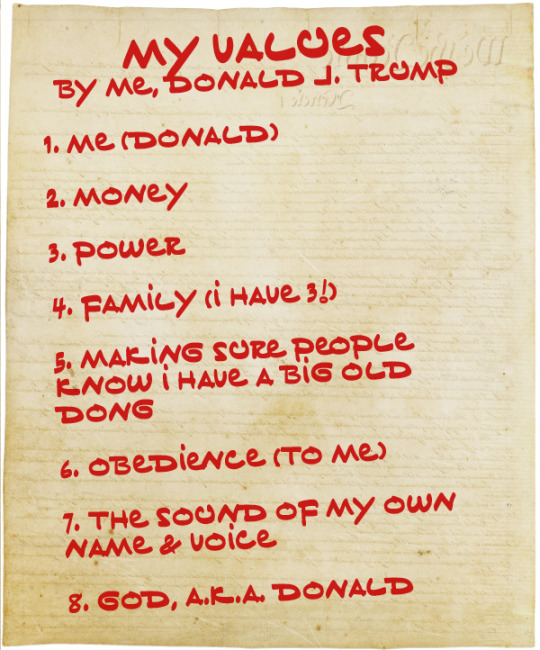 MY VALUES
BY ME, DONALD J. TRUMP
1. ME (DONALD)
2. MONEY
3. POWER
4. FAMILY (i HAVE 3!)
5. MAKiNG SURE PEOPLE
KNOW i HAVE A BiG OLD
DONG
6. OBEDiENCE (TO ME)
7. THE SOUND OF MY OWN
NAME & VOiCE
8. GOD, A.K.A. DONALD